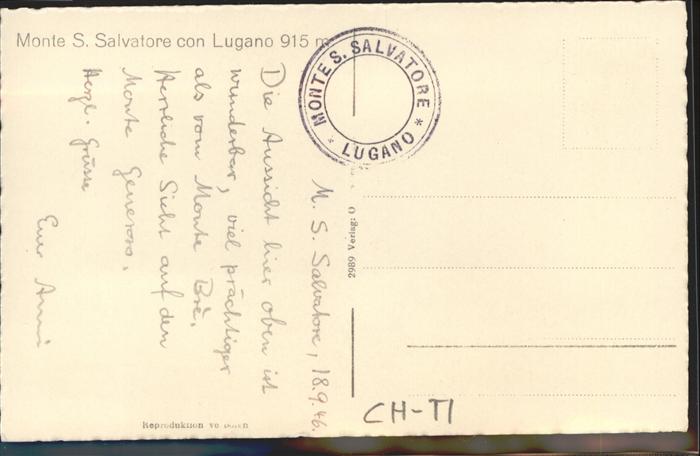 Monte S. Salvatore con Lugano 915 m
MONTE S. SALVATORE
* LUGANO *
M. S. Salvatore, 18.9.46.
Die Aussicht hier oben ist
wunderbar, viel prächtiger
als vom Monte Brè.
Herrliche Sicht auf den
Monte Generoso.
Herzl. Grüsse
Eure Anni
2989 Verlag: O
Reproduktion
CH-TI